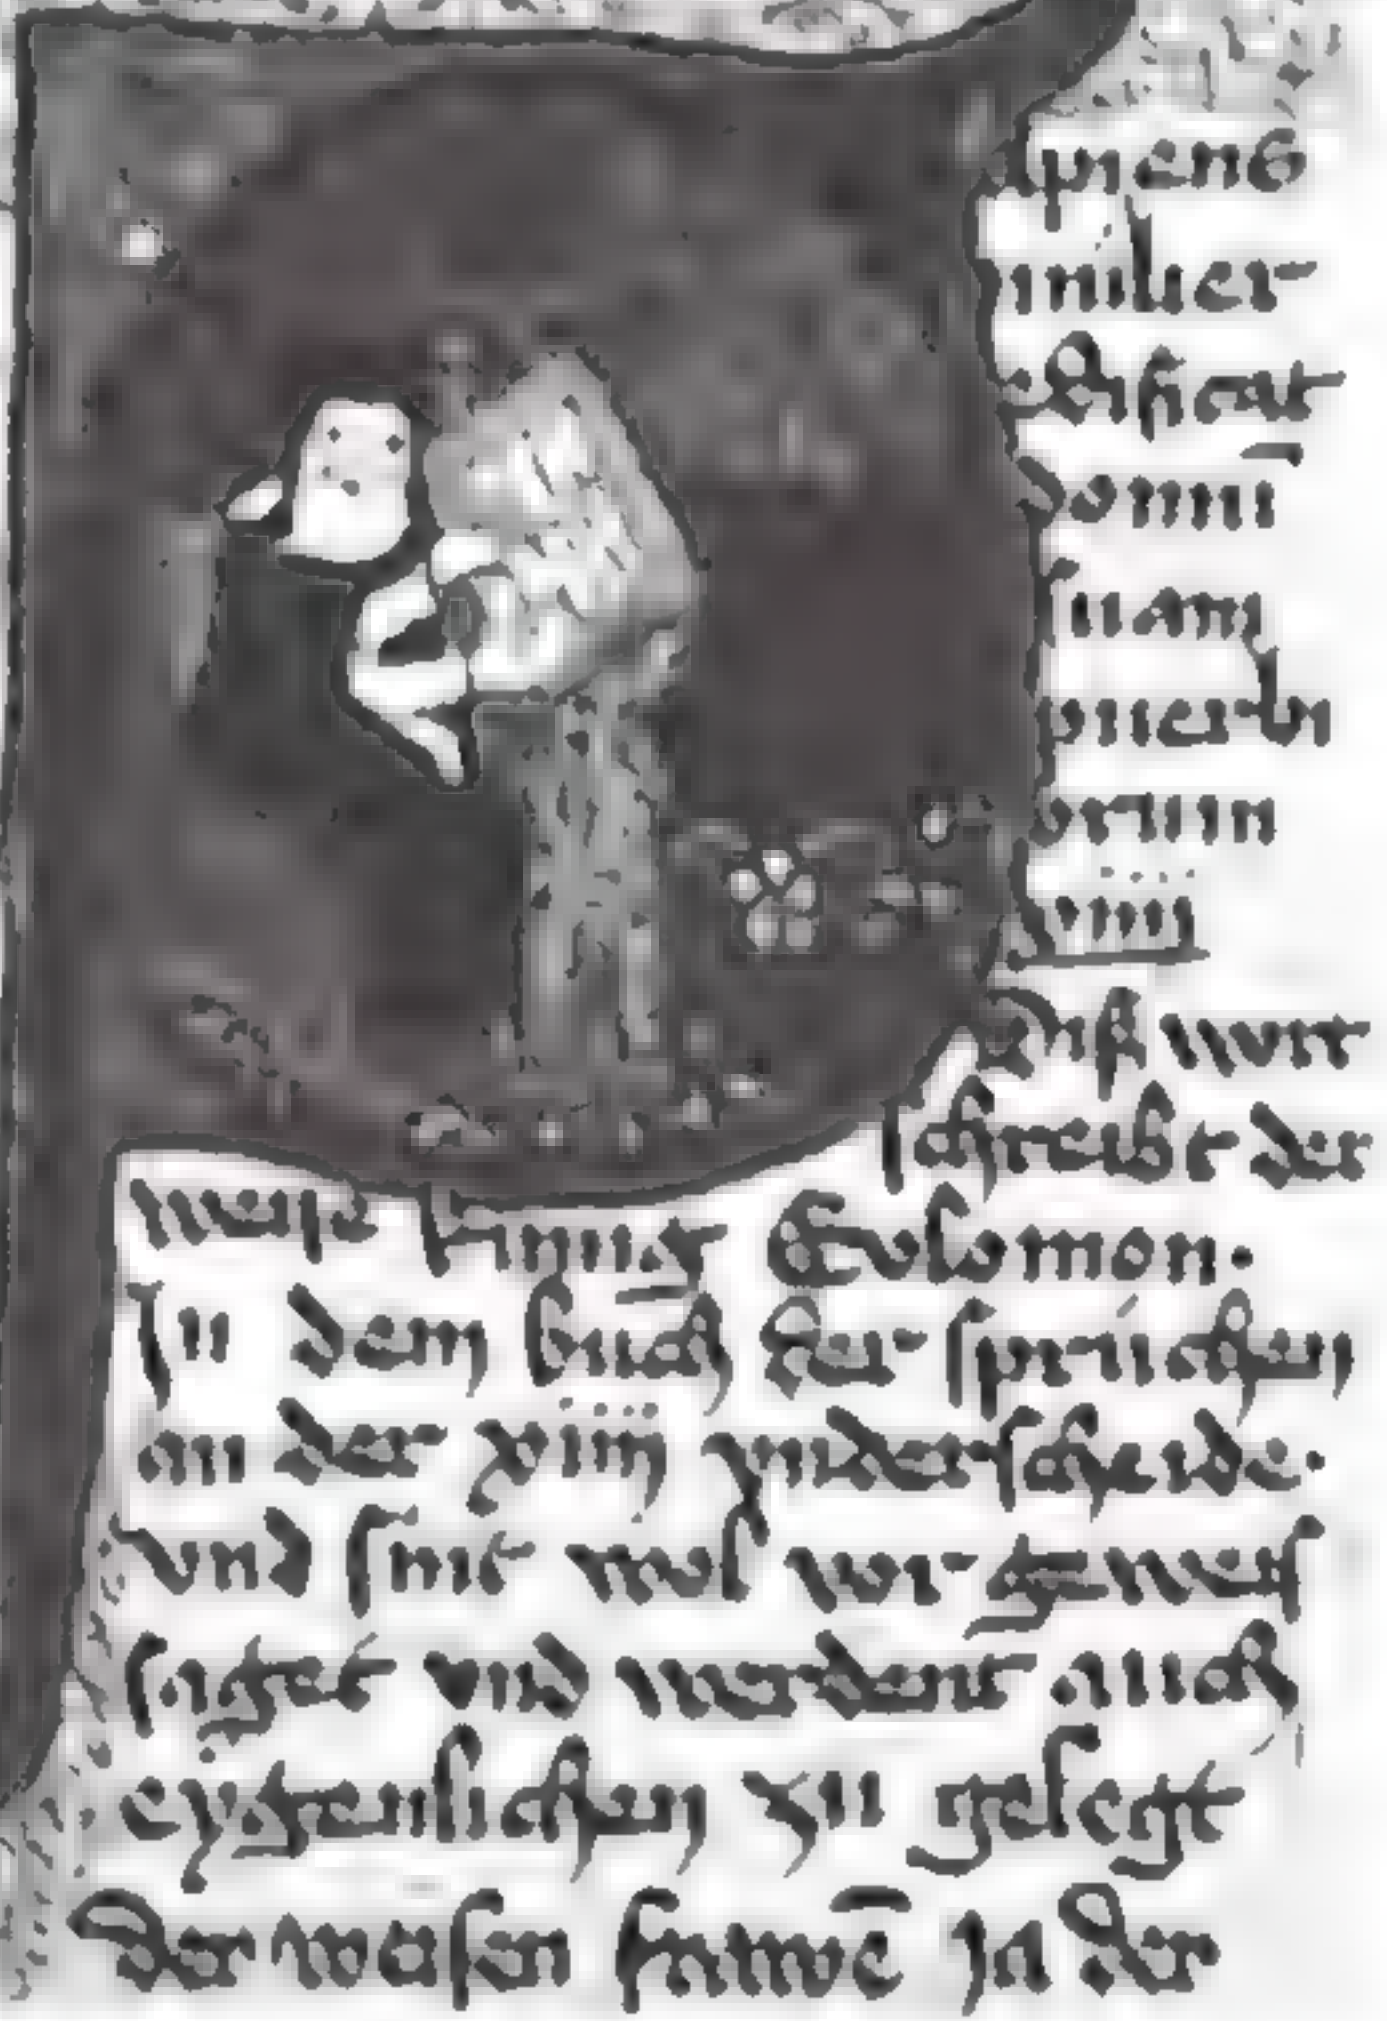 apiens
mulier
edificat
domū
suam
puerbi
orum
xiiij
Diß wort
schreibt der
weise kunig Salomon.
In dem buch der sprüchen
an der xiiij vnderscheide.
vnd sint wol vor geweis
saget vnd werdent auch
eygenlichen zu gelegt
der weisen frawē Ja der